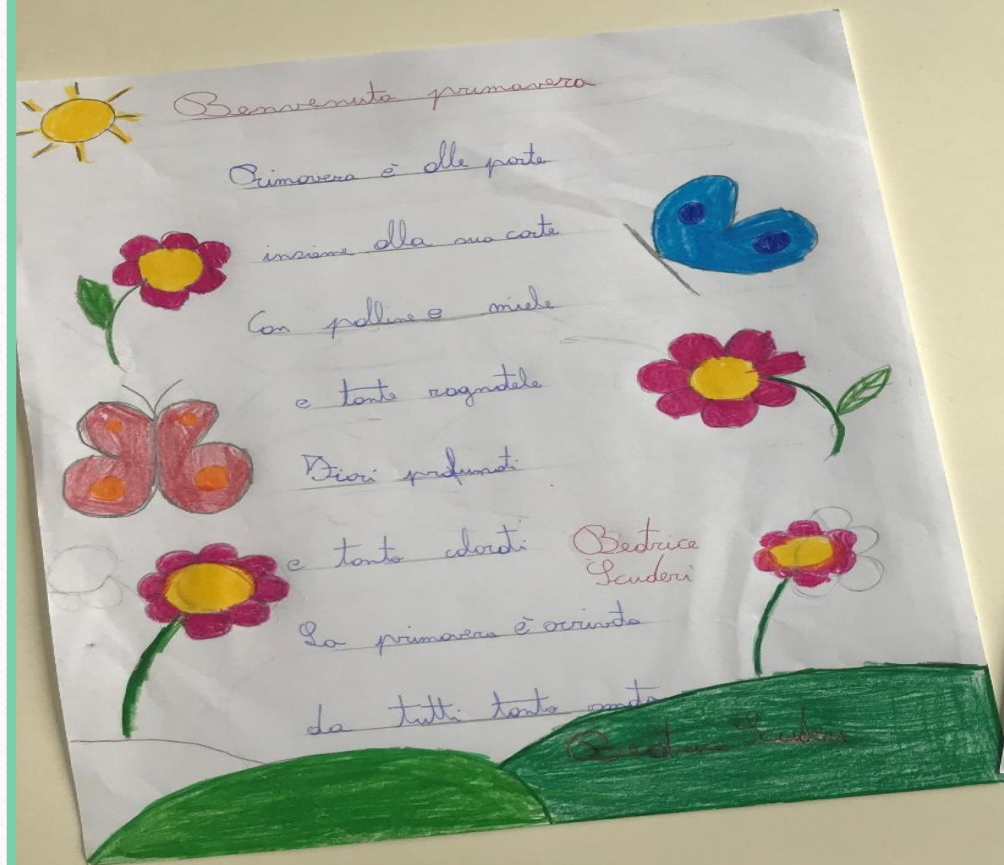 Benvenuta primavera
Primavera è alle porte
insieme alla sua corte
Con polline e miele
e tante ragnatele
Fiori profumati
e tanto colorati
Beatrice
Scuderi
La primavera è arrivata
da tutti tanto amata
Beatrice Scuderi